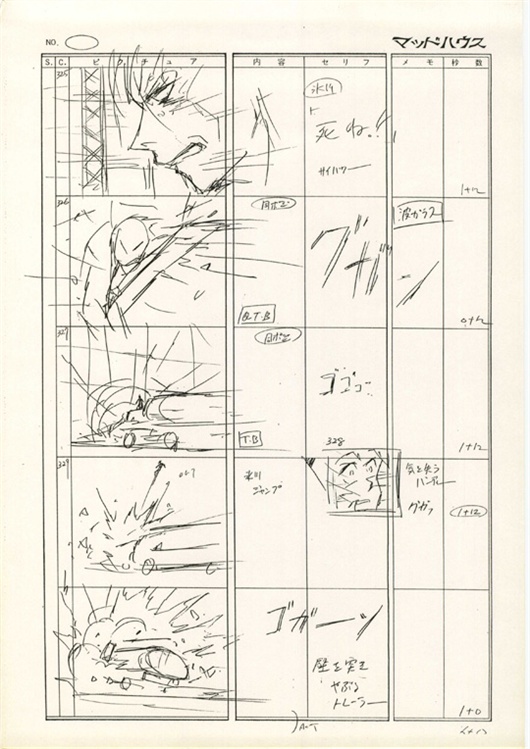 NO.
マッドハウス
S. C. ピクチュア 内容 セリフ メモ 秒数
325
氷川
死ね!!
サイバー
1+12
326
同ポジ
ググガーン
波ガラス
Q.T.B
0+12
327
同ポジ
ゴゴゴ
T.B
1+12
328
329
OUT
氷川
ジャンプ
気を失う
ハンドー
グガッ
1+12
ゴガーーン
壁を突き
やぶる
トレーラー
1+0